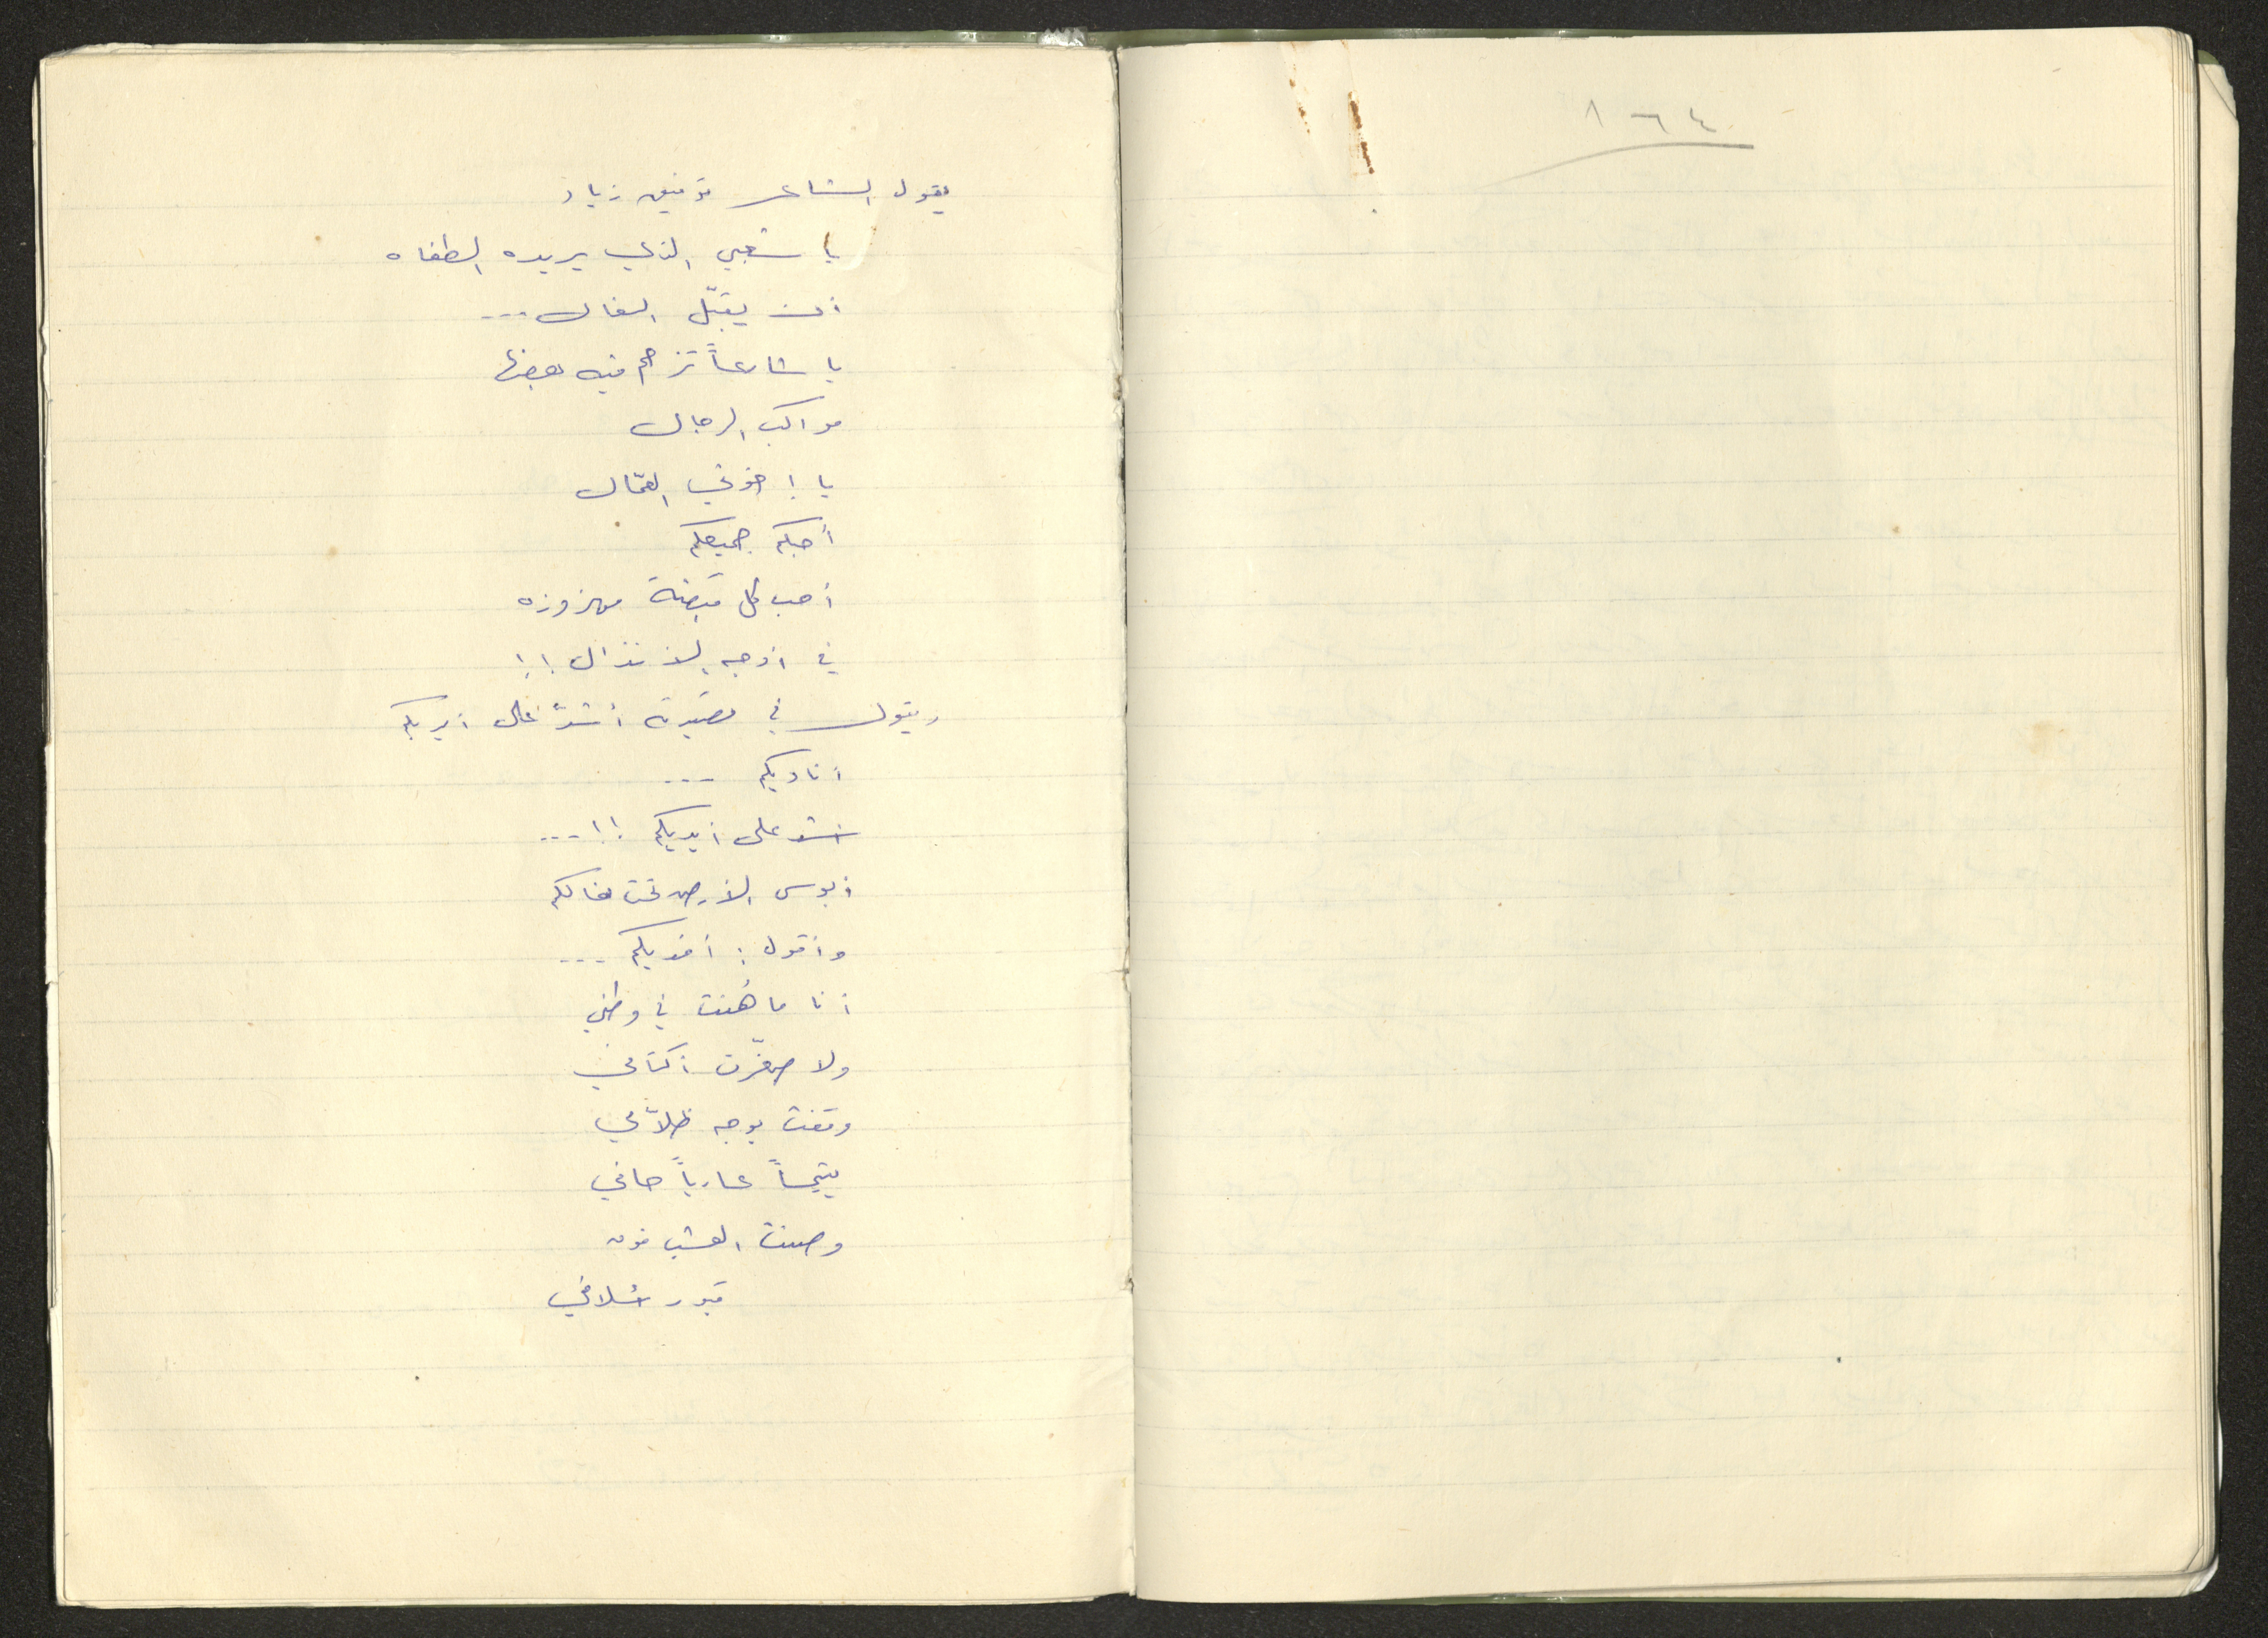 ١٦٤
يقول الشاعر توفيق زياد
يا شعبي الذي يريده الطغاه
أن يقبّل النعال ...
يا شارعاً تزحم فيه بعضها
مواكب الرجال
يا إخوتي العمّال
أحبكم جميعكم
أحب كل قبضة مهزوزه
في أوجه الأنذال !!
ويقول في قصيدة أشدّ على أيديكم
أناديكم ...
اشد على أيديكم !! ...
أبوس الأرض تحت نعالكم
وأقول : أفديكم ...
أنا ما هُنت في وطني
ولا صغّرت أكتافي
وقفت بوجه ظلاّمي
يتيماً عارياً حافي
وصنت العشب فوق
قبور أسلافي